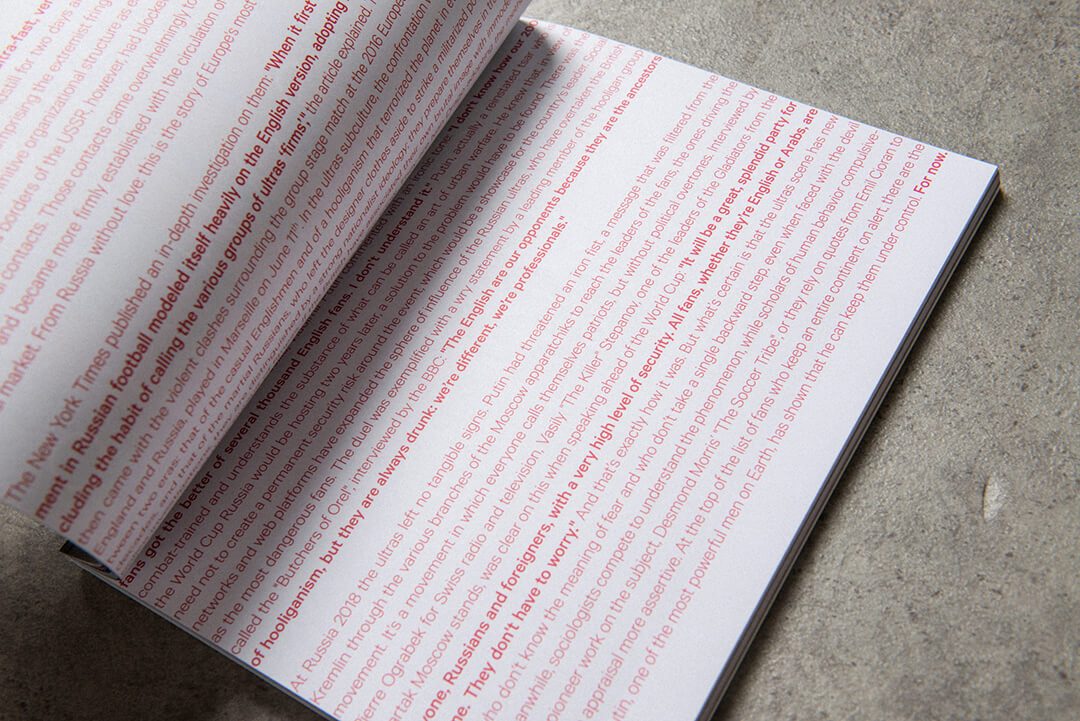 for two days as
mprising the extremist
organizational structure, as
borders of the USSR however, had booked
contacts. Those contacts came overwhelmingly to
and became more firmly established with the circulation of
market. From Russia without love: this is the story of Europe's most
The New York Times published an in-depth investigation on them: "When it first
ment in Russian football modeled itself heavily on the English version, adopting
cluding the habit of calling the various groups of ultras firms," the article explained.
then came with the violent clashes surrounding the group stage match at the 2016 Europe
England and Russia, played in Marseille on June 11. In the ultras subculture, the confrontation
tween two eras: that of the casual Englishmen and of a hooliganism that terrorized the planet in
and that of the martial Russians, who left the designer clothes aside to strike a militarized
by a strong nationalist ideology, they prepare themselves in
brutal image with
fans got the better of several thousand English fans, I don't understand it." "I don't know how our 200
combat-trained and understands the substance of what can be called an art of urban warfare. He knew that, in
the World Cup Russia would be hosting two years later, a solution to the problem would have to be found. There
need not to create a permanent security risk around the event, which would be a showcase for the country's leader. Social
networks and web platforms have expanded the sphere of influence of the Russian ultras, who have overtaken the British
as the most dangerous fans. The duel was exemplified with a wry statement by a leading member of the hooligan group
called the "Butchers of Orel", interviewed by the BBC: "The English are our opponents because they are the ancestors
of hooliganism, but they are always drunk: we're different, we're professionals."
At Russia 2018 the ultras left no tangible signs. Putin had threatened an iron fist, a message that was filtered from the
Kremlin through the various branches of the Moscow apparatchiks to reach the leaders of the fans, the ones driving the
movement. It's a movement in which everyone calls themselves patriots, but without political overtones. Interviewed by
Pierre Ograbek for Swiss radio and television, Vasily "The Killer" Stepanov, one of the leaders of the Gladiators from the
artak Moscow stands, was clear on this when speaking ahead of the World Cup: "It will be a great, splendid party for
yone, Russians and foreigners, with a very high level of security. All fans, whether they're English or Arabs, are
me. They don't have to worry." And that's exactly how it was. But what's certain is that the ultras scene has new
who don't know the meaning of fear and who don't take a single backward step, even when faced with the devil
anwhile, sociologists compete to understand the phenomenon, while scholars of human behavior compulsive-
pioneer work on the subject, Desmond Morris' "The Soccer Tribe", or they rely on quotes from Emil Cioran to
appraisal more assertive. At the top of the list of fans who keep an entire continent on alert, there are the
tin, one of the most powerful men on Earth, has shown that he can keep them under control. For now.